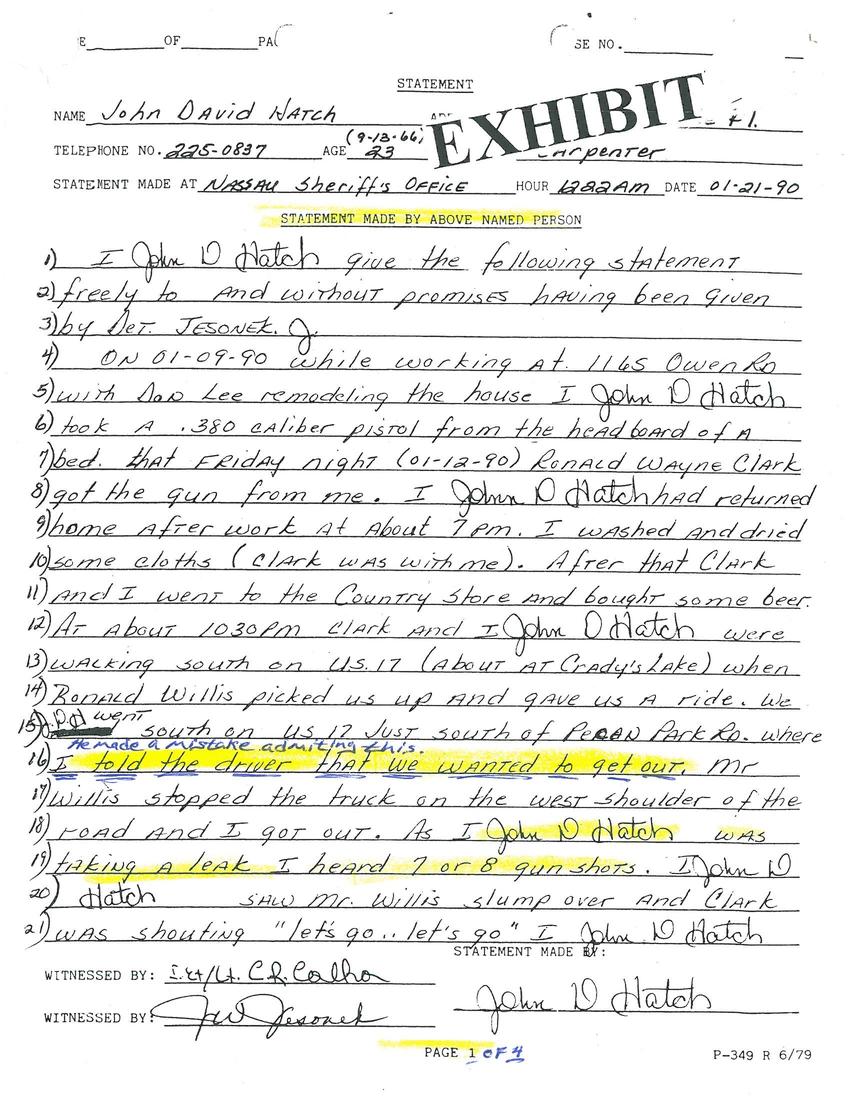 E____OF____PA SE NO.____
STATEMENT
NAME John David Hatch
EXHIBIT
#1.
TELEPHONE NO. 225-0837 AGE (9-13-66) 23 Carpenter
STATEMENT MADE AT NASSAU Sheriff's OFFICE HOUR 1222AM DATE 01-21-90
STATEMENT MADE BY ABOVE NAMED PERSON
1) I John D Hatch give the following statement
2) freely to and without promises having been given
3) by Det. JESONEK. J.
4) ON 01-09-90 while working at. 1165 Owen Rd
5) with Dan Lee remodeling the house I John D Hatch
6) took a .380 caliber pistol from the headboard of a
7) bed. that FRIDAY night (01-12-90) Ronald Wayne Clark
8) got the gun from me. I John D Hatch had returned
9) home after work at about 7pm. I washed and dried
10) some cloths (Clark was with me). After that Clark
11) and I went to the Country Store and bought some beer.
12) At about 1030pm Clark and I John D Hatch were
13) walking south on US.17 (about at Crady's Lake) when
14) Ronald Willis picked us up and gave us a ride. we
15) J.D.H went south on US.17 Just south of Pecan Park Rd. where
He made a mistake admiting this.
16) I told the driver that we wanted to get out. Mr
17) Willis stopped the truck on the west shoulder of the
18) road and I got out. As I John D Hatch was
19) taking a leak I heard 7 or 8 gun shots. I John D
20) Hatch saw Mr. Willis slump over and Clark
21) was shouting "let's go.. let's go" I John D Hatch
STATEMENT MADE BY:
WITNESSED BY: C.R. Calho
John D Hatch
WITNESSED BY: JW Jesonek
PAGE 1 of 4
P-349 R 6/79